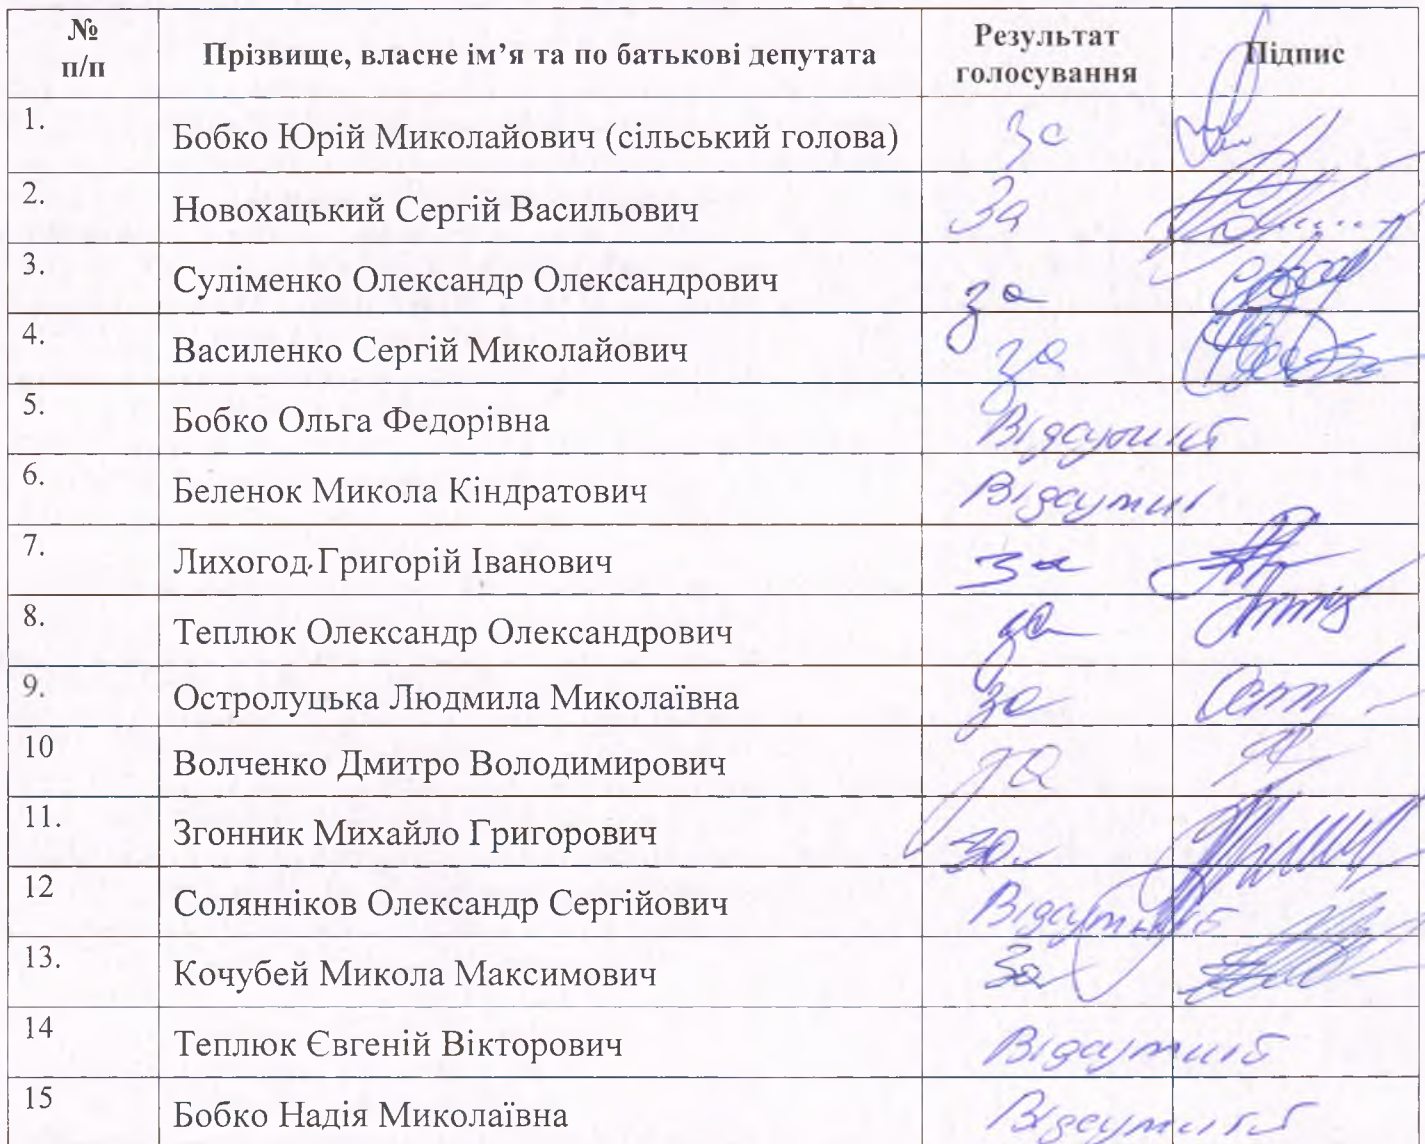 № п/п Прізвище, власне ім’я та по батькові депутата Результат голосування Підпис
1. Бобко Юрій Миколайович (сільський голова) За
2. Новохацький Сергій Васильович За
3. Суліменко Олександр Олександрович за
4. Василенко Сергій Миколайович за
5. Бобко Ольга Федорівна Відсутній
6. Беленок Микола Кіндратович Відсутні
7. Лихогод Григорій Іванович за
8. Теплюк Олександр Олександрович за
9. Остролуцька Людмила Миколаївна за
10 Волченко Дмитро Володимирович за
11. Згонник Михайло Григорович за
12 Солянніков Олександр Сергійович Відсутній
13. Кочубей Микола Максимович За
14 Теплюк Євгеній Вікторович Відсутній
15 Бобко Надія Миколаївна Відсутній